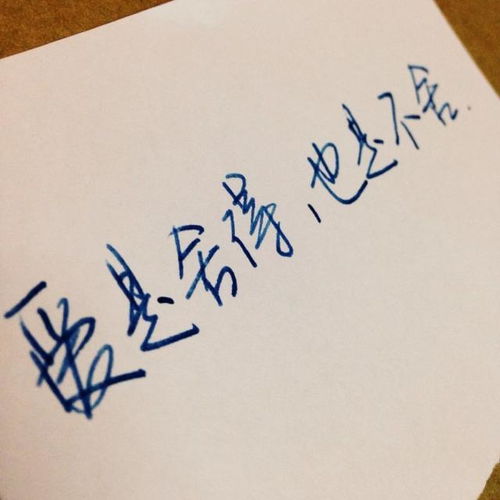 爱是舍得，也是不舍.